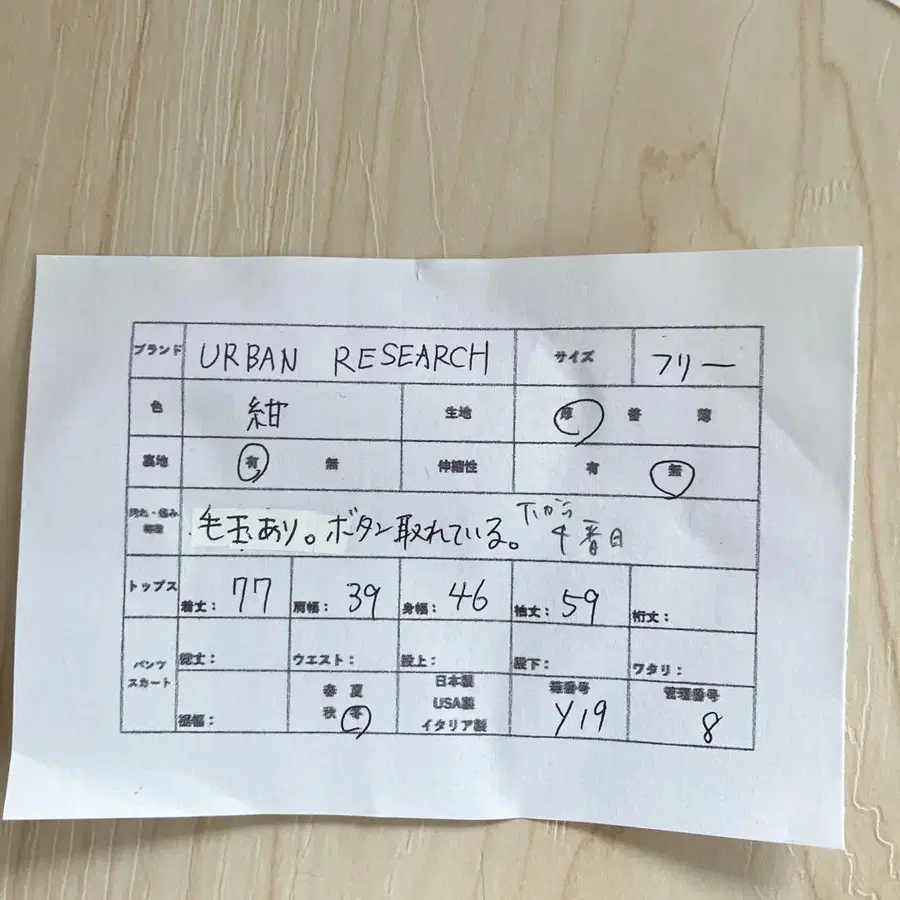 ブランド URBAN RESEARCH サイズ フリー
色 紺 生地 厚 普 薄
裏地 有 無 伸縮性 有 無
汚れ・傷み
毛玉あり。ボタン取れている。下から4番目
トップス 着丈: 77 肩幅: 39 身幅: 46 袖丈: 59 裄丈:
パンツ スカート 総丈: ウエスト: 股上: 股下: ワタリ:
裾幅: 春 夏 秋 冬 日本製 USA製 イタリア製 箱番号 Y19 管理番号 8